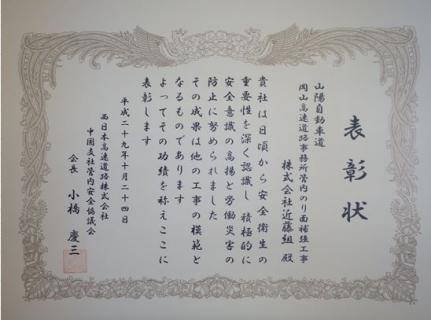 表彰状
山陽自動車道
岡山高速道路事務所管内のり面補強工事
株式会社近藤組 殿
貴社は日頃から安全衛生の
重要性を深く認識し積極的に
安全意識の高揚と労働災害の
防止に努められました
その成果は他の工事の模範と
なるものであります
よってその功績を称えここに
表彰します
平成二十九年十月二十四日
西日本高速道路株式会社
中国支社管内安全協議会
会長 小橋 慶三